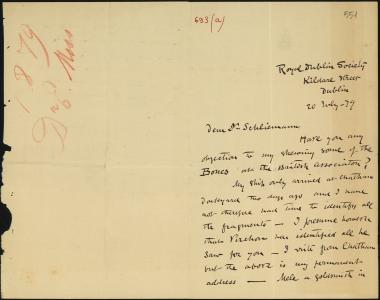 683(a)
551
1/8/79
Royal Dublin Society
Kildare Street
Dublin
20 July - 79
Dear Dr Schliemann
Have you any
objection to my shewing some of the
Bones at the British Association?
My ship only arrived at Chatham
Dockyard two days ago and I have
not therefore had time to identify all
the fragments — I presume however
that Virchow has identified all he
saw for you — I write from Chatham
but the above is my permanent
address — Mele a goldsmith in